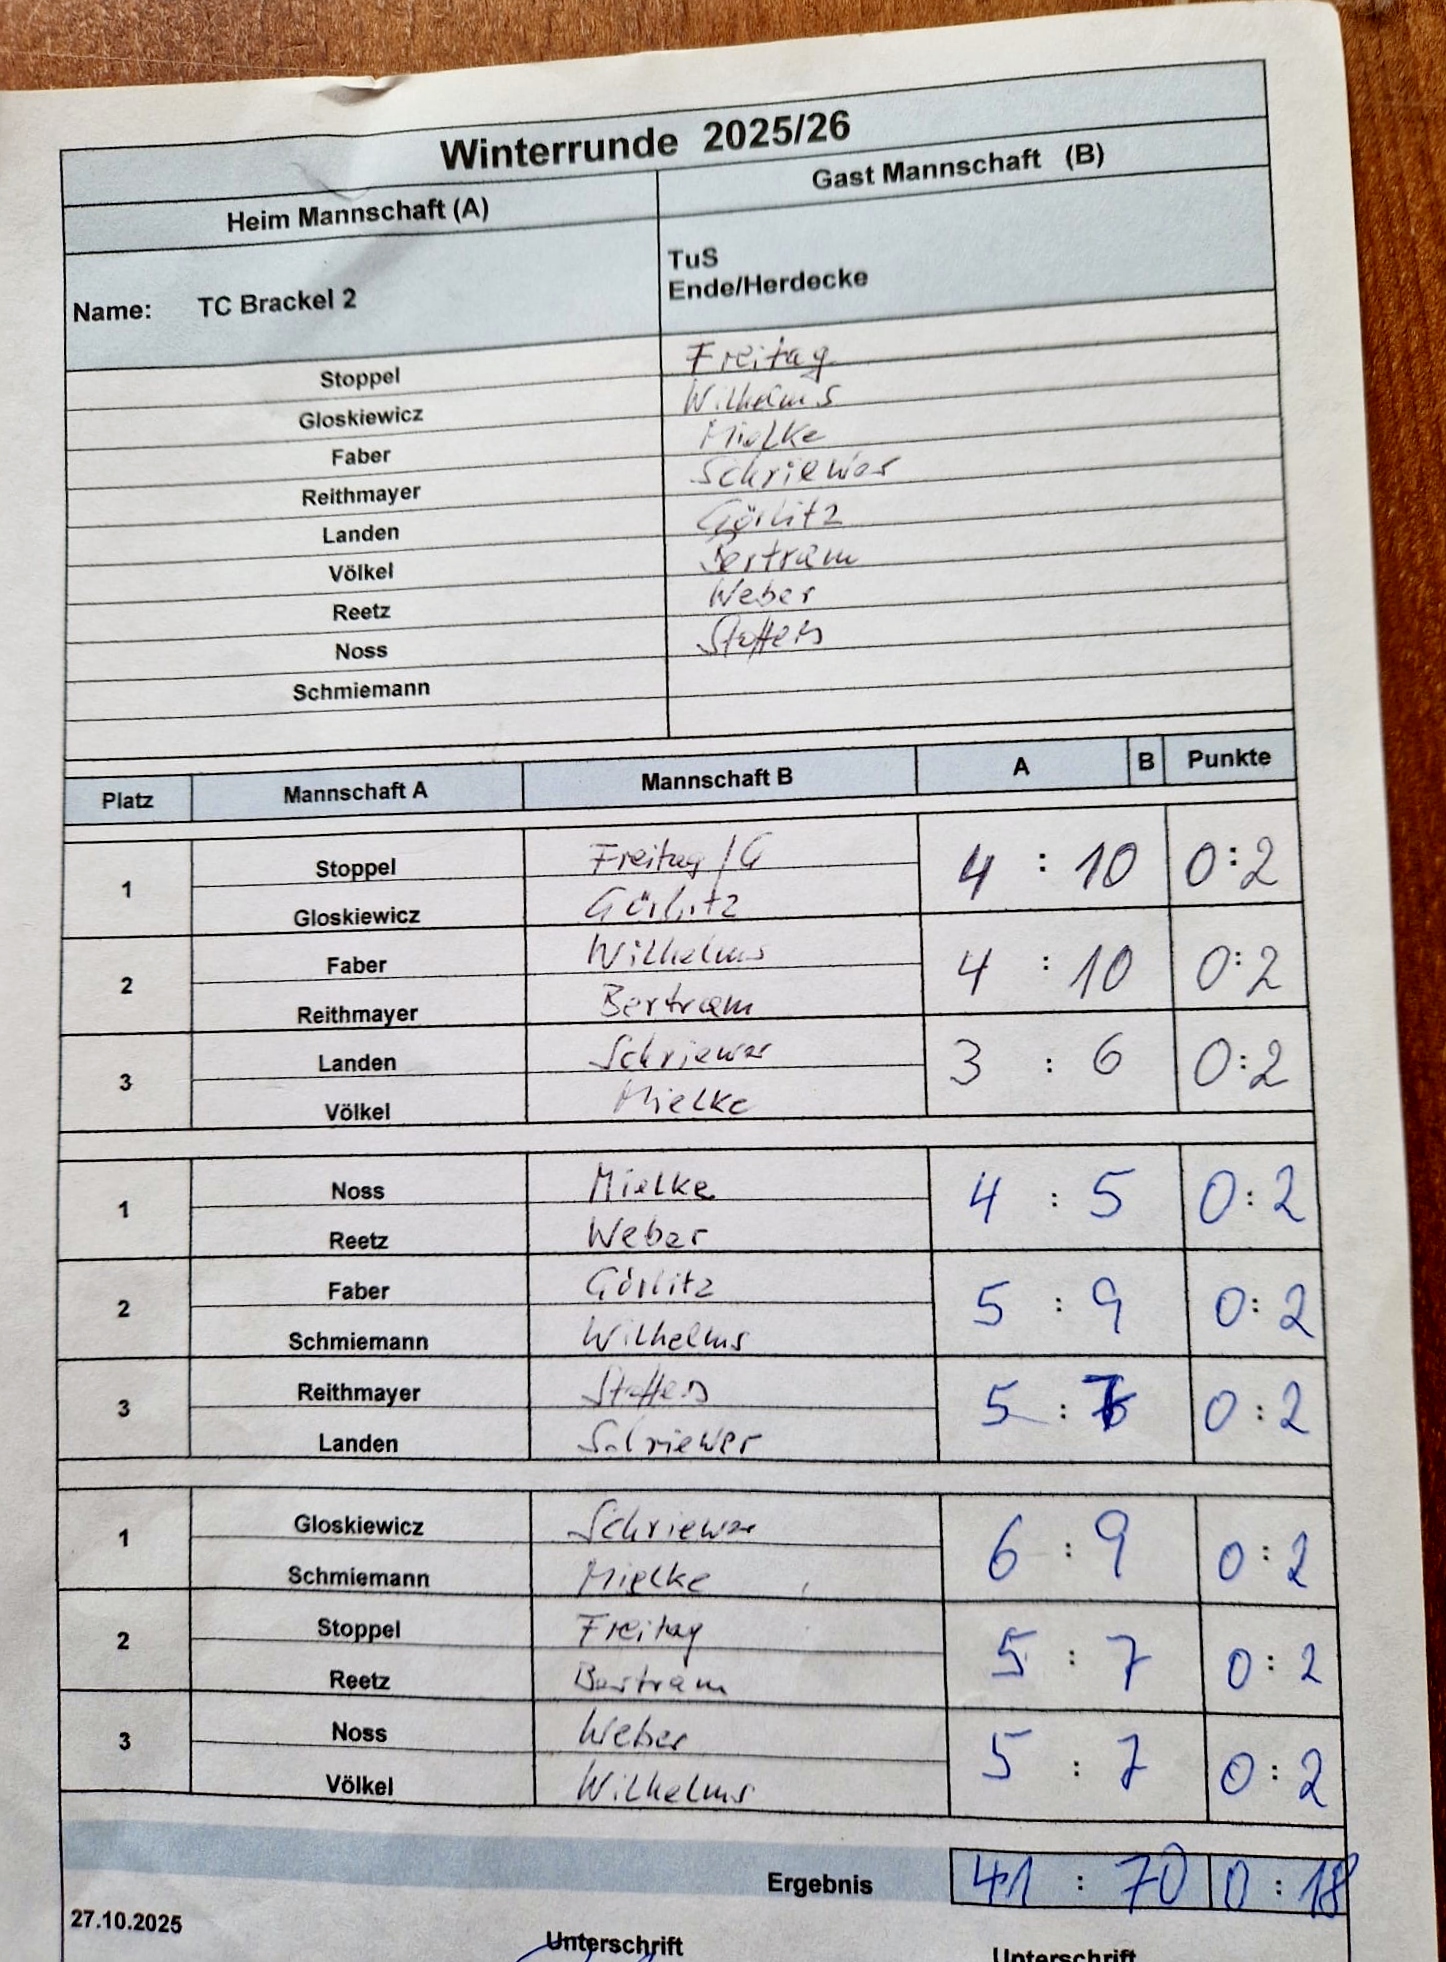 Winterrunde 2025/26
Heim Mannschaft (A) Gast Mannschaft (B)
Name: TC Brackel 2 TuS
Ende/Herdecke
Stoppel Freitag
Gloskiewicz Wilhelms
Faber Mielke
Reithmayer Schriewer
Landen Görlitz
Völkel Bertram
Reetz Weber
Noss Stoffers
Schmiemann
Platz Mannschaft A Mannschaft B A B Punkte
1 Stoppel Freitag /G 4 : 10 0:2
Gloskiewicz Görlitz
2 Faber Wilhelms 4 : 10 0:2
Reithmayer Bertram
3 Landen Schriewer 3 : 6 0:2
Völkel Mielke
1 Noss Mielke 4 : 5 0:2
Reetz Weber
2 Faber Görlitz 5 : 9 0:2
Schmiemann Wilhelms
3 Reithmayer Stoffers 5 : 0:2
Landen Schriewer
1 Gloskiewicz Schriewer 6 : 9 0:2
Schmiemann Mielke
2 Stoppel Freitag 5 : 7 0:2
Reetz Bertram
3 Noss Weber 5 : 7 0:2
Völkel Wilhelms
Ergebnis 41 : 70 0 : 18
27.10.2025
Unterschrift Unterschrift